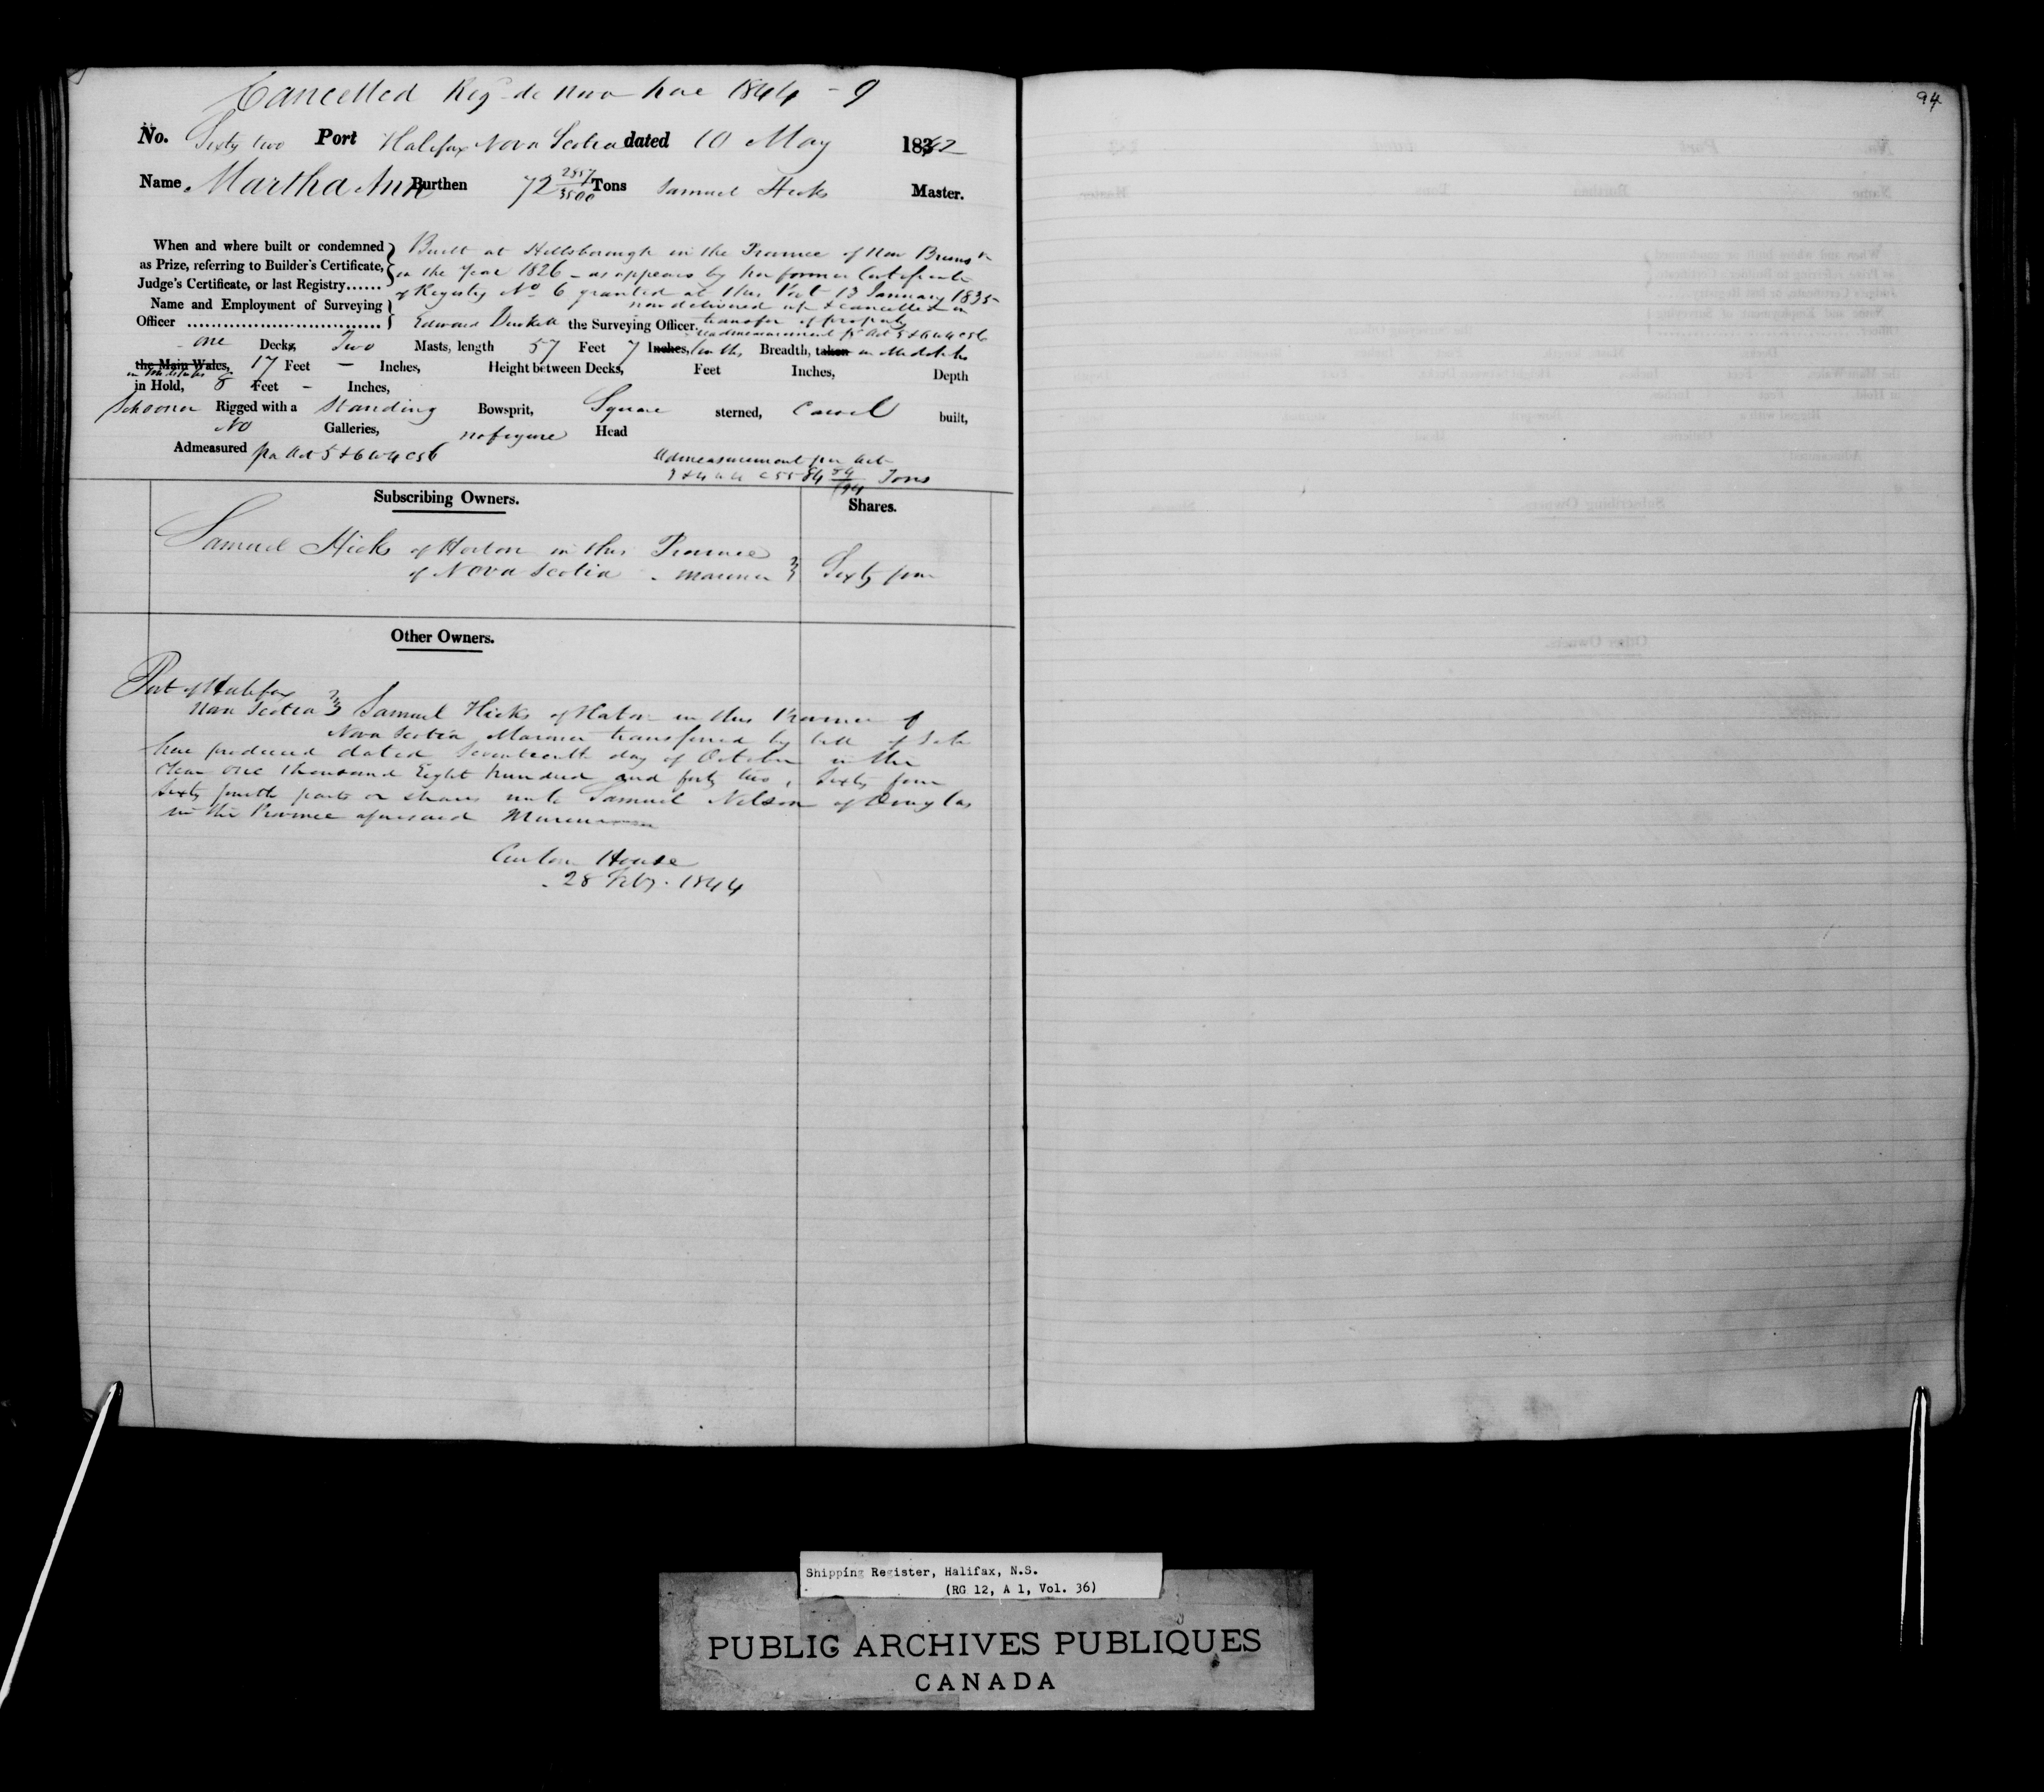 Cancelled Reg de novo here 1844 - 9
94
No. Sixty two Port Halifax Nova Scotia dated 10 May 1842
Name Martha Ann Burthen 72 2957/3500 Tons Samuel Hicks Master.
When and where built or condemned as Prize, referring to Builder's Certificate, Judge's Certificate, or last Registry......
Built at Hillsborough in the Province of New Brunsk
in the Year 1826 - as appears by her former Certificate
of Registry No 6 granted at this Port 13 January 1835
now delivered up & cancelled on
transfer of property
& readmeasurement pr Act 5 & 6 W 4 C 56
Name and Employment of Surveying Officer
Edward the Surveying Officer.
one Decks, Two Masts, length 57 Feet 7 Inches, tenths, Breadth, taken in Midships
the Main Wales, 17 Feet - Inches, Height between Decks, Feet Inches, Depth
in Midships
in Hold, 8 Feet - Inches,
Schooner Rigged with a Standing Bowsprit, Square sterned, Carvel built,
No Galleries, no figure Head
Admeasured pr Act 5 & 6 W 4 C 56
Admeasurement per Act
3 & 4 W 4 C 55 84 54/94 Tons
Subscribing Owners. Shares.
Samuel Hicks of Horton in this Province
of Nova Scotia - Mariner } Sixty four
Other Owners.
Port of Halifax
Nova Scotia } Samuel Hicks of Horton in this Province of
Nova Scotia Mariner transferred by bill of Sale
here produced dated Seventeenth day of October in the
Year one thousand Eight hundred and forty two, Sixty four
Sixty fourth parts or shares unto Samuel Nelson of Douglas
in the Province aforesaid Mariner
Custom House
28 Feby. 1844
Shipping Register, Halifax, N.S.
(RG 12, A 1, Vol. 36)
PUBLIC ARCHIVES PUBLIQUES
CANADA